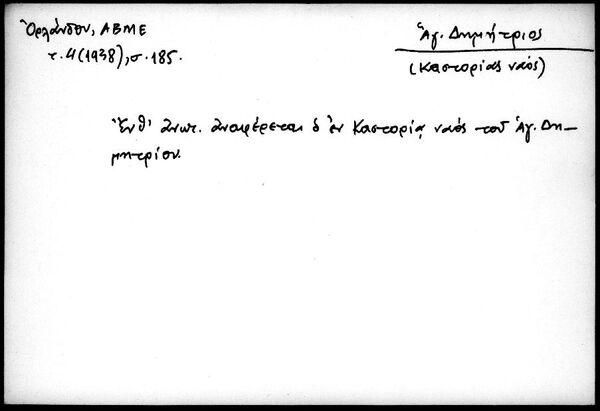 Ὀρλάνδου, ΑΒΜΕ
τ. 4 (1938), σ. 185.
Ἁγ. Δημήτριος
(Καστορίας ναός)
Ἔνθ' ἀνωτ. ἀναφέρεται ὁ ἐν Καστορίᾳ ναός τοῦ Ἁγ. Δη-
μητρίου.